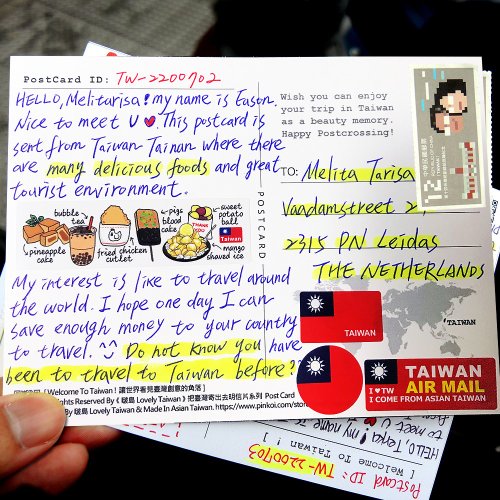 PostCard ID: TW-2200702
HELLO, Melitarisa! my name is Eason.
Nice to meet U ♥. This postcard is
sent from Taiwan Tainan where there
are many delicious foods and great
tourist environment.
bubble tea
pigs blood cake
sweet potato ball
THANK YOU
TAIWAN
pineapple cake
fried chicken cutlet
mango shaved ice
My interest is like to travel around
the world. I hope one day I can
save enough money to your country
to travel. ^^ Do not know you have
been to travel to Taiwan before?
「Welcome To Taiwan! 讓世界看見臺灣創意的角落」
Rights Reserved By《啵島 Lovely Taiwan》把臺灣寄出去明信片系列 Post Card
啵島 Lovely Taiwan & Made In Asian Taiwan. https://www.pinkoi.com/store
POSTCARD
Wish you can enjoy
your trip in Taiwan
as a beauty memory.
Happy Postcrossing!
12
中華民國郵票
REPUBLIC OF CHINA
TO: Melita Tarisa
Vaadamstreet
2315 PN Leidas
THE NETHERLANDS
TAIWAN
TAIWAN
TAIWAN
AIR MAIL
I ♥ TW
I COME FROM ASIAN TAIWAN
Postcard ID: TW-2200703
HELLO,
my name is
to meet U
[Welcome To Taiwan!